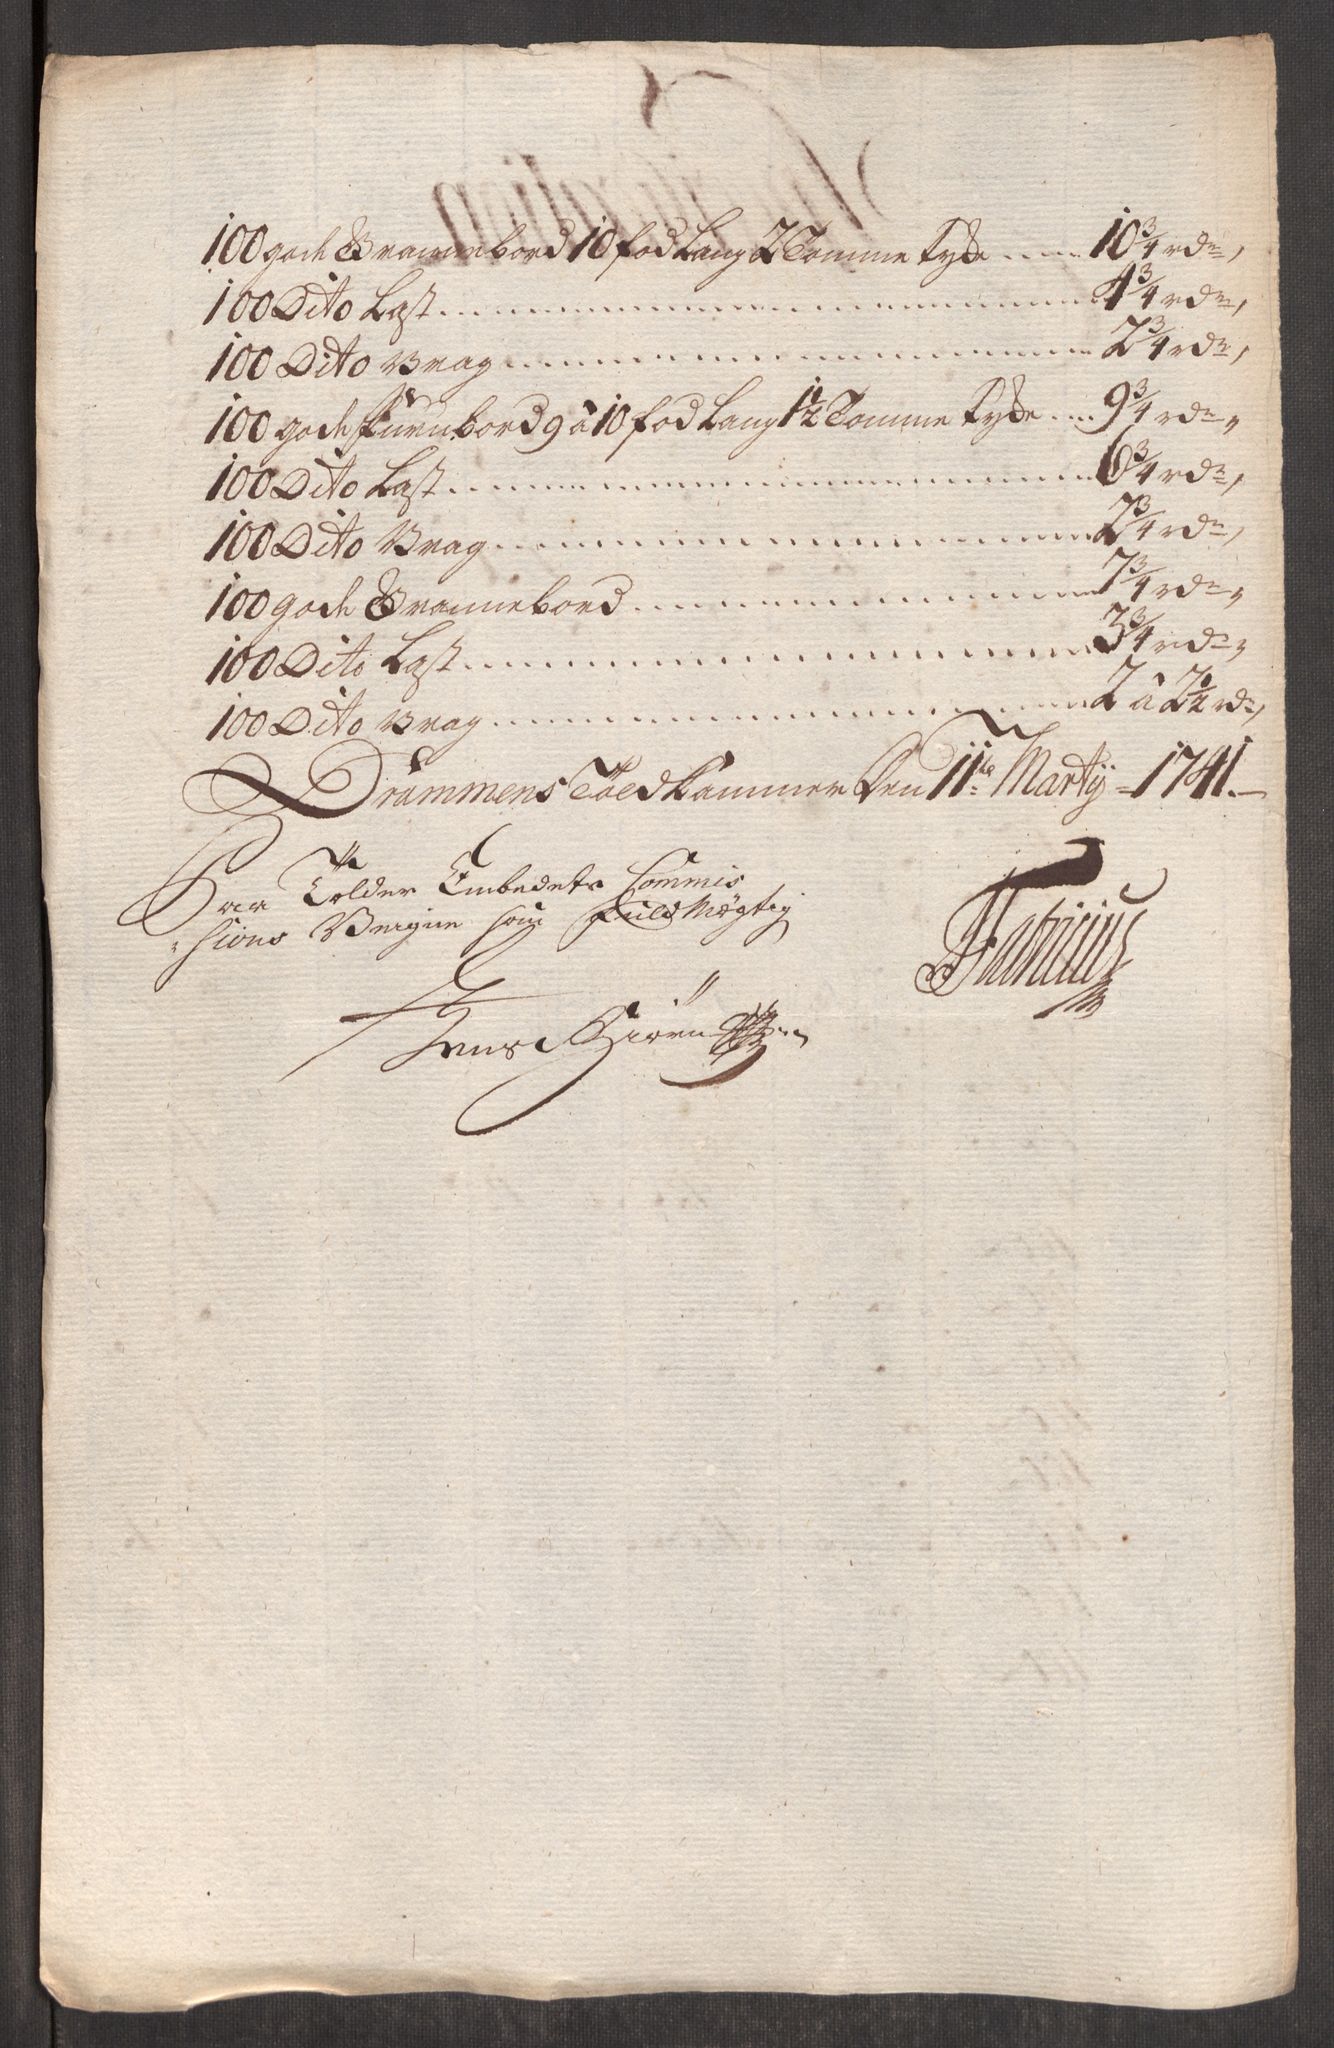 100 gode Grannebord 10 fod Lang 2 Tomme tyke ... 10 3/4 rdr,
100 Dito Last ... 4 3/4 rdr,
100 Dito Vrag ... 2 3/4 rdr,
100 gode Furubord 9 à 10 fod Lang 1 1/2 Tomme tyke ... 9 3/4 rdr,
100 Dito Last ... 6 3/4 rdr,
100 Dito Vrag ... 2 3/4 rdr,
100 gode Grannebord ... 7 3/4 rdr,
100 Dito Last ... 3 3/4 rdr,
100 Dito Vrag ... 2 à 2 1/2 rdr,
Drammens Told Kammer den 11te Martij 1741.
Paa Tolder Embedets Commis
sions Vegne som Fuldmægtig
Jens Biørn